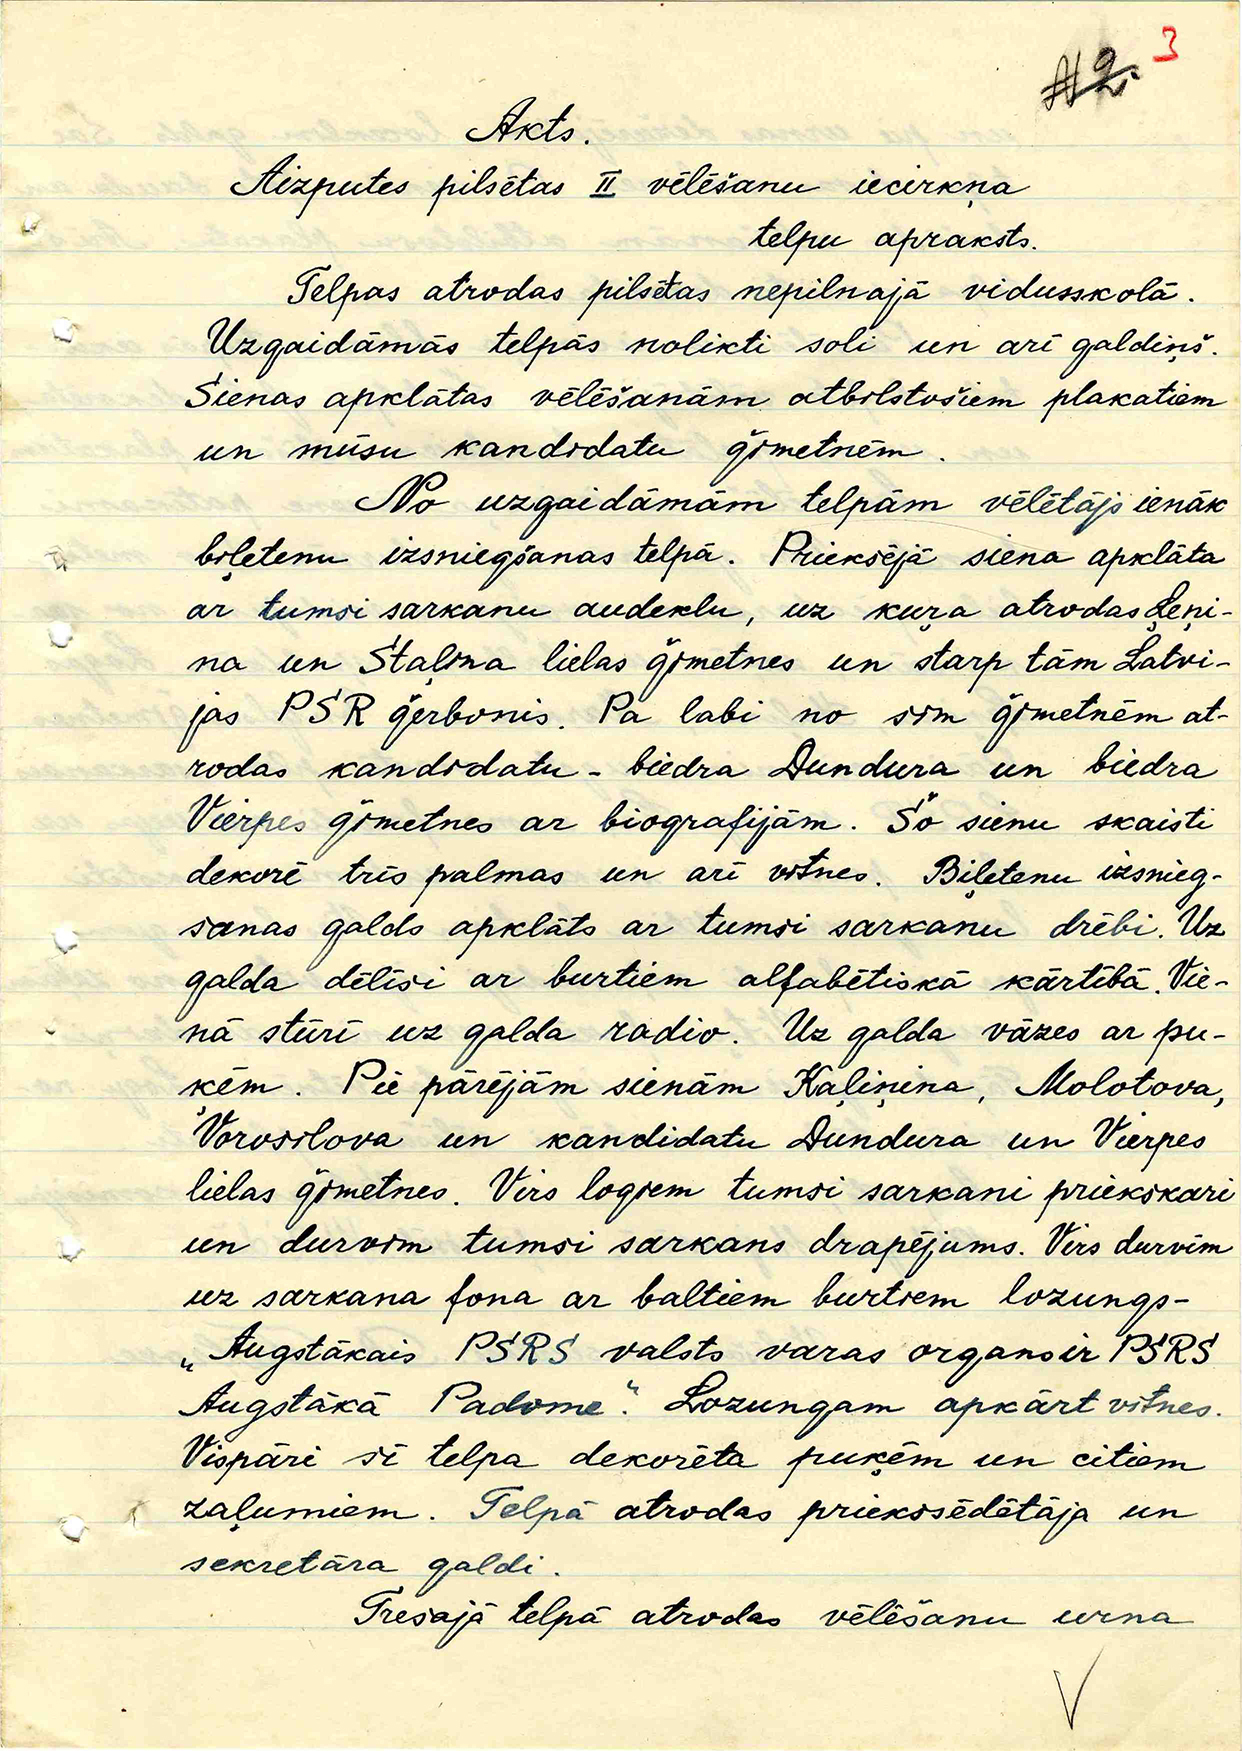 3
№2.
Akts.
Aizputes pilsētas II vēlēšanu iecirkņa
telpu apraksts.
Telpas atrodas pilsētas nepilnajā vidusskolā.
Uzgaidāmās telpās nolikti soli un arī galdiņš.
Sienas apklātas vēlēšanām atbilstošiem plakatiem
un mūsu kandidatu ģimetnēm.
No uzgaidāmām telpām vēlētājs ienāk
biļetenu izsniegšanas telpā. Priekšējā siena apklāta
ar tumši sarkanu audeklu, uz kuŗa atrodas Ļeņi-
na un Staļina lielas ģimetnes un starp tām Latvi-
jas PSR ģerbonis. Pa labi no šim ģimetnēm at-
rodas kandidatu - biedra Dundura un biedra
Vierpes ģimetnes ar biografijām. Šo sienu skaisti
dekorē trīs palmas un arī vītnes. Biļetenu izsnieg-
šanas galds apklāts ar tumši sarkanu drēbi. Uz
galda dēlīši ar burtiem alfabētiskā kārtībā. Vie-
nā stūrī uz galda radio. Uz galda vāzes ar pu-
ķēm. Pie pārējām sienām Kaļiņina, Molotova,
Vorošilova un kandidatu Dundura un Vierpes
lielas ģimetnes. Virs logiem tumši sarkani priekškari
un durvīm tumši sarkans drapējums. Virs durvīm
uz sarkana fona ar baltiem burtiem lozungs-
„Augstākais PSRS valsts varas organs ir PSRS
Augstākā Padome“. Lozungam apkārt vītnes.
Vispāri šī telpa dekorēta puķēm un citiem
zaļumiem. Telpā atrodas priekšsēdētāja un
sekretāra galdi.
Trešajā telpā atrodas vēlēšanu urna